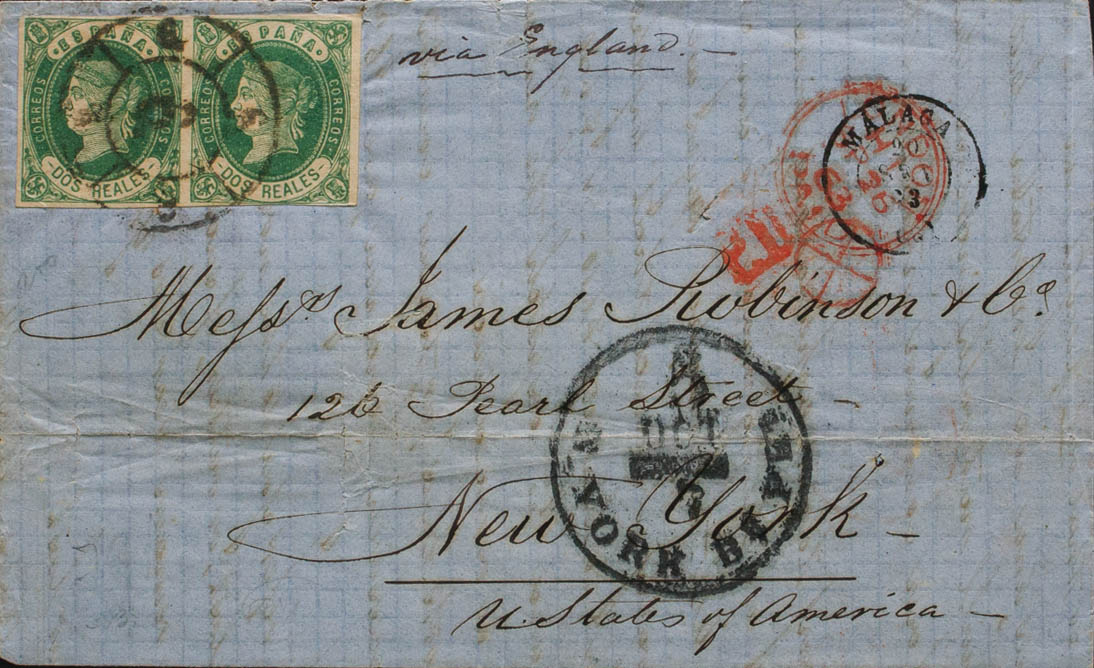 ESPAÑA
CORREOS
CORREOS
DOS REALES
ESPAÑA
CORREOS
CORREOS
DOS REALES
via England. -
MÁLAGA
20
PAID
63
P.D.
Messrs James Robinson & Co.
126 Pearl Street -
New York -
U. States of America -
OCT
N. YORK